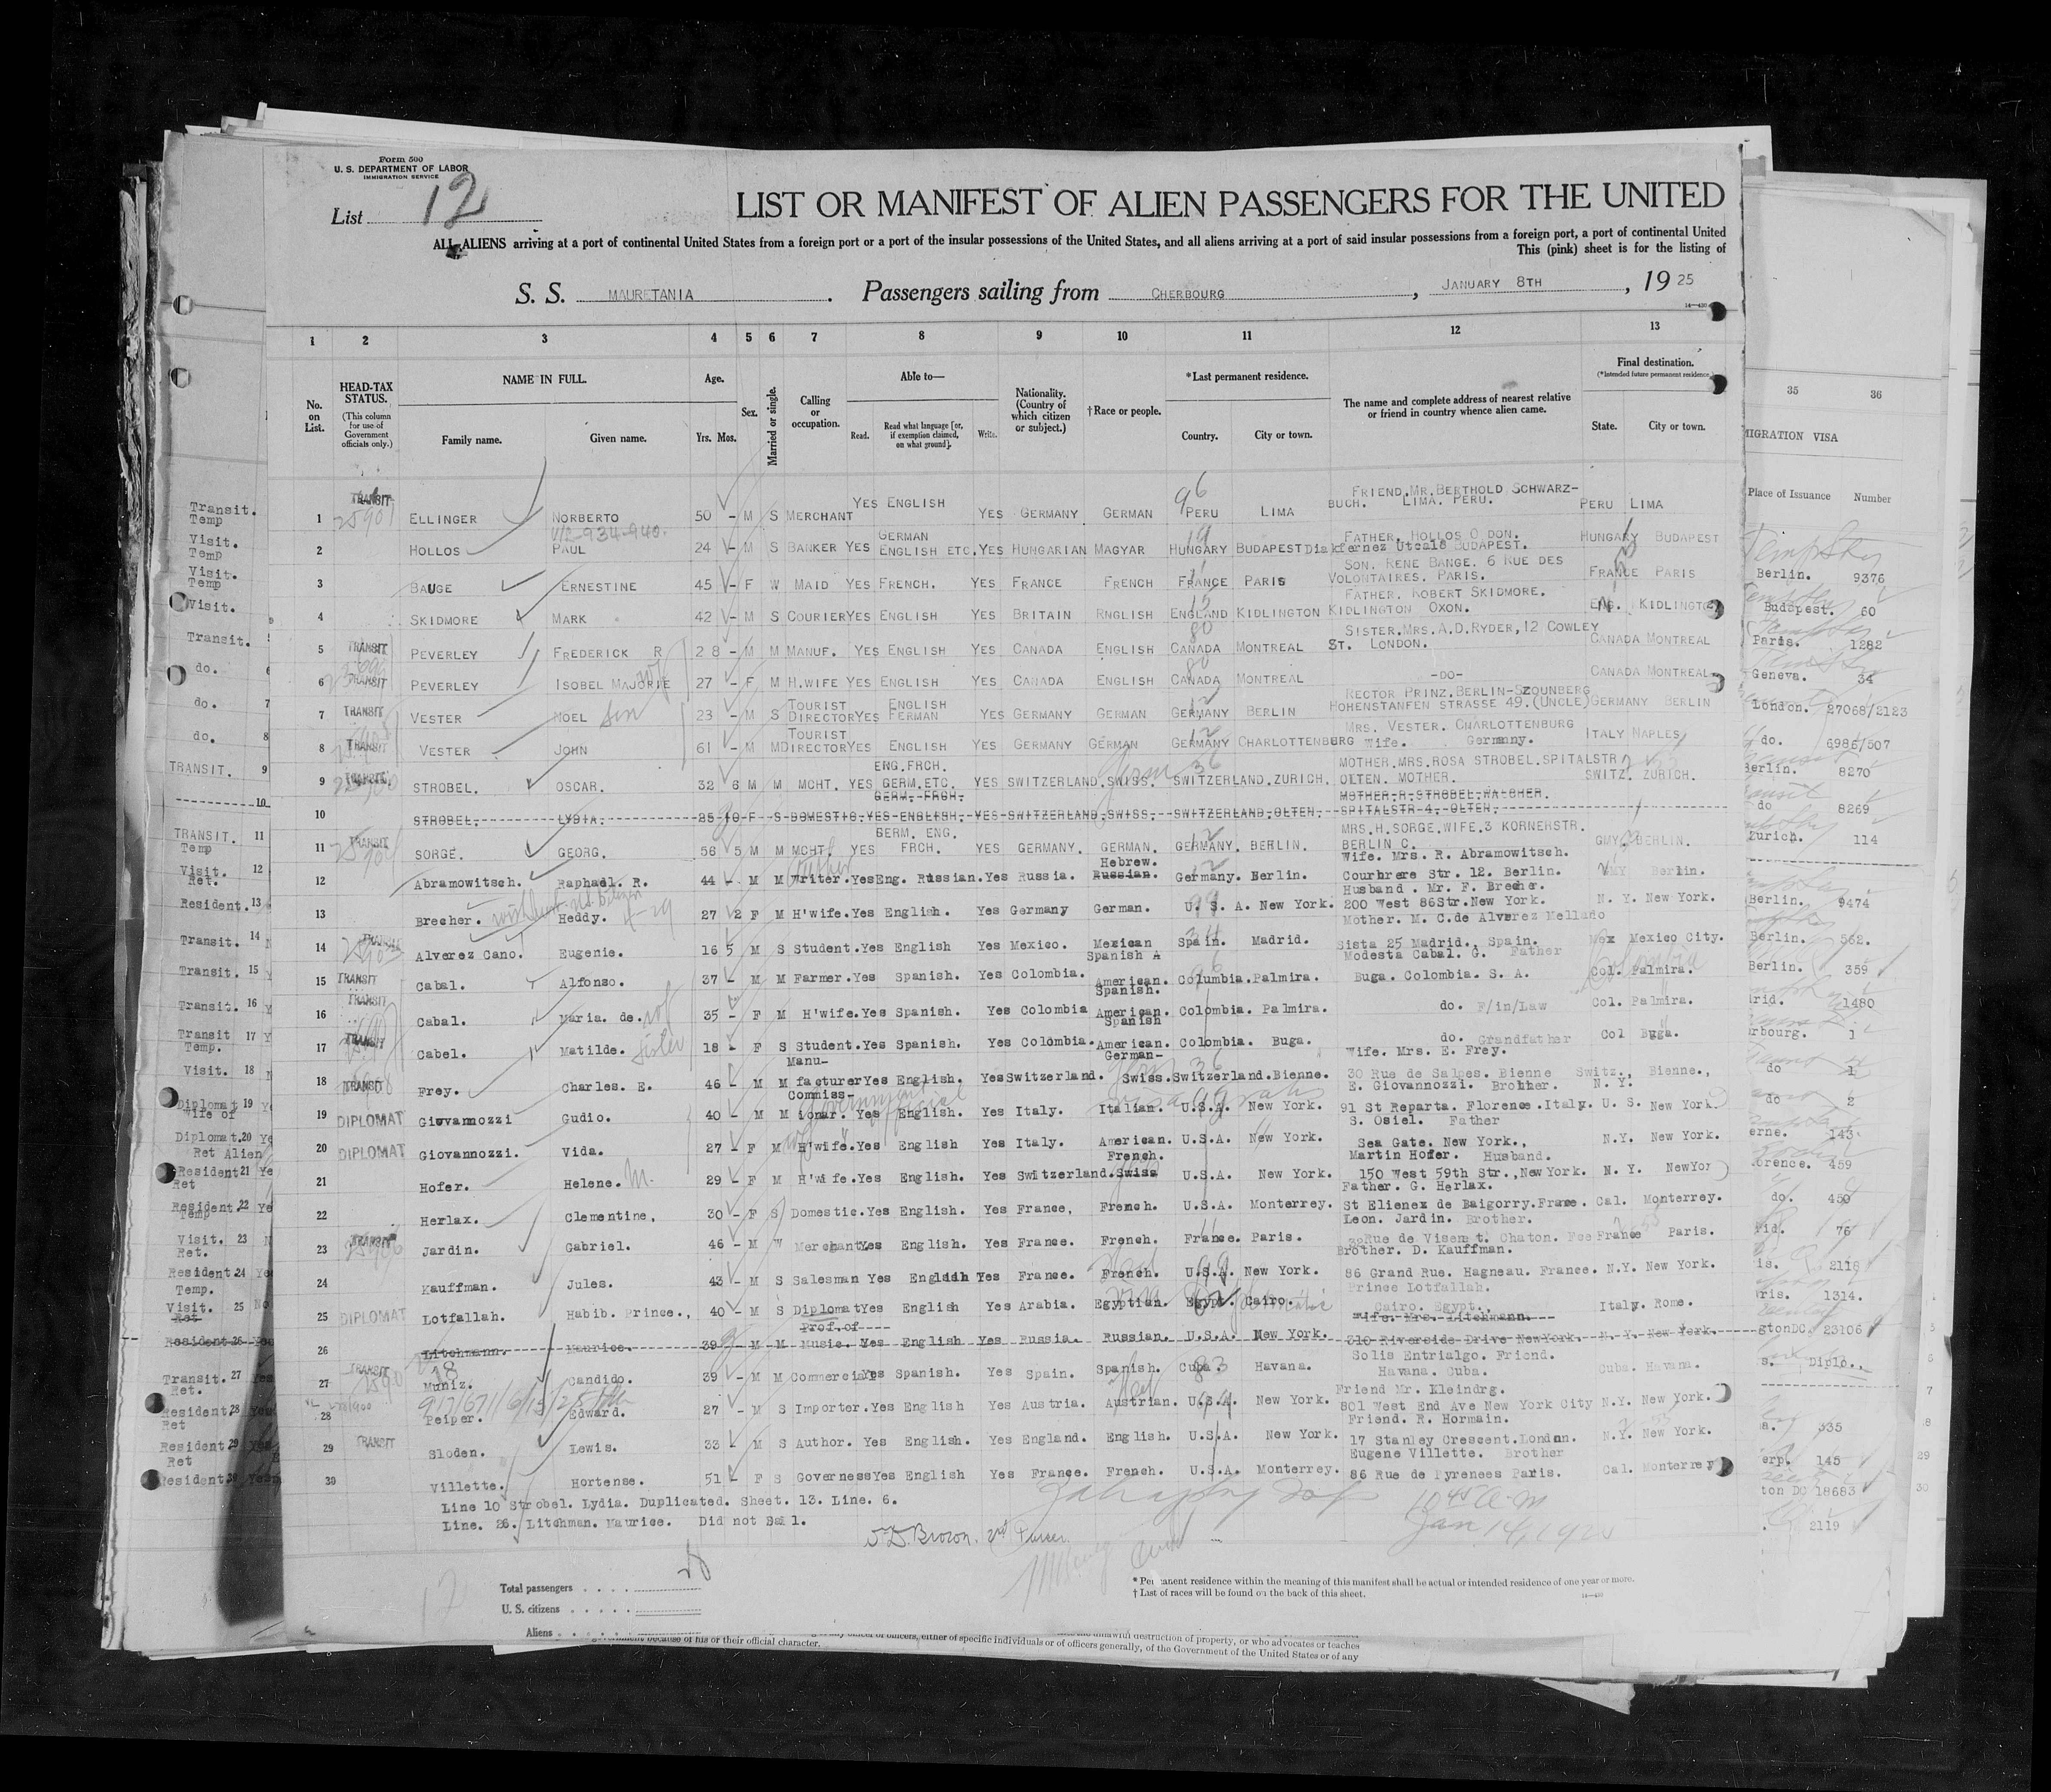 Form 500
U. S. DEPARTMENT OF LABOR
IMMIGRATION SERVICE
List 12
LIST OR MANIFEST OF ALIEN PASSENGERS FOR THE UNITED
ALL ALIENS arriving at a port of continental United States from a foreign port or a port of the insular possessions of the United States, and all aliens arriving at a port of said insular possessions from a foreign port, a port of continental United
This (pink) sheet is for the listing of
S. S. MAURETANIA. Passengers sailing from CHERBOURG, JANUARY 8TH, 1925
1 2 3 4 5 6 7 8 9 10 11 12 13
No. on List. HEAD-TAX STATUS. (This column for use of Government officials only.) NAME IN FULL. Family name. Given name. Age. Yrs. Mos. Sex. Married or single. Calling or occupation. Able to— Read. Read what language [or, if exemption claimed, on what ground]. Write. Nationality. (Country of which citizen or subject.) †Race or people. *Last permanent residence. Country. City or town. The name and complete address of nearest relative or friend in country whence alien came. Final destination. (*Intended future permanent residence.) State. City or town.
35 36
MIGRATION VISA
Place of Issuance Number
1 TRANSIT ELLINGER NORBERTO 50 - M S MERCHANT YES ENGLISH YES GERMANY GERMAN PERU LIMA FRIEND.MR.BERTHOLD SCHWARZ-BUCH. LIMA. PERU. PERU LIMA
2 HOLLOS PAUL 24 - M S BANKER YES GERMAN ENGLISH ETC. YES HUNGARIAN MAGYAR HUNGARY BUDAPEST FATHER. HOLLOS O DON. Diakfernez Utca18 BUDAPEST. HUNGARY BUDAPEST
3 BAUGE ERNESTINE 45 - F W MAID YES FRENCH. YES FRANCE FRENCH FRANCE PARIS SON. RENE BANGE. 6 RUE DES VOLONTAIRES. PARIS. FRANCE PARIS
4 SKIDMORE MARK 42 - M S COURIER YES ENGLISH YES BRITAIN RNGLISH ENGLAND KIDLINGTON FATHER. ROBERT SKIDMORE. KIDLINGTON OXON. ENG. KIDLINGTO
5 TRANSIT PEVERLEY FREDERICK R 28 - M M MANUF. YES ENGLISH YES CANADA ENGLISH CANADA MONTREAL SISTER.MRS.A.D.RYDER,12 COWLEY ST. LONDON. CANADA MONTREAL
6 TRANSIT PEVERLEY ISOBEL MAJORIE wf 27 - F M H.WIFE YES ENGLISH YES CANADA ENGLISH CANADA MONTREAL -DO- CANADA MONTREAL
7 TRANSIT VESTER NOEL son 23 - M S TOURIST DIRECTOR YES ENGLISH FERMAN YES GERMANY GERMAN GERMANY BERLIN RECTOR PRINZ.BERLIN-SZOUNBERG HOHENSTANFEN STRASSE 49.(UNCLE) GERMANY BERLIN
8 TRANSIT VESTER JOHN 61 - M M TOURIST DIRECTOR YES ENGLISH YES GERMANY GERMAN GERMANY CHARLOTTENBURG MRS. VESTER. CHARLOTTENBURG Wife. Germany. ITALY NAPLES
9 TRANSIT STROBEL. OSCAR. 32 6 M M MCHT. YES ENG.FRCH. GERM.ETC. YES SWITZERLAND. SWISS. SWITZERLAND. ZURICH. MOTHER.MRS.ROSA STROBEL.SPITALSTR OLTEN. MOTHER. SWITZ. ZURICH.
10 STROBEL. LYDIA. 25 10 F S DOMESTIC. YES GERM. FRCH. ENGLISH. YES SWITZERLAND. SWISS. SWITZERLAND. OLTEN. MOTHER.R.STROBEL.WALCHER. SPITALSTR 4. OLTEN.
11 TRANSIT SORGE. GEORG. 56 5 M M MCHT. YES GERM. ENG. FRCH. YES GERMANY. GERMAN. GERMANY. BERLIN. MRS.H.SORGE.WIFE.3 KORNERSTR. BERLIN C. GMY. BERLIN.
12 Abramowitsch. Raphael. R. 44 - M M Writer. Yes Eng. Russian. Yes Russia. Hebrew. Russian. Germany. Berlin. Wife. Mrs. R. Abramowitsch. Courbrere Str. 12. Berlin. Berlin.
13 Brecher. Heddy. 27 2 F M H'wife. Yes English. Yes Germany German. U. S. A. New York. Husband. Mr. F. Brecher. 200 West 86Str.New York. N. Y. New York.
14 TRANSIT Alverez Cano. Eugenie. 16 5 M S Student. Yes English Yes Mexico. Mexican Spain. Madrid. Mother. M. C.de Alverez Mellado Sista 25 Madrid., Spain. Mex Mexico City.
15 TRANSIT Cabal. Alfonso. 37 - M M Farmer. Yes Spanish. Yes Colombia. Spanish A American. Columbia. Palmira. Modesta Cabal. G. Father Buga. Colombia. S. A. Col. Palmira.
16 TRANSIT Cabal. Maria. de. wf 35 - F M H'wife. Yes Spanish. Yes Colombia Spanish. American. Colombia. Palmira. do. F/in/Law Col. Palmira.
17 TRANSIT Cabel. Matilde. sister 18 - F S Student. Yes Spanish. Yes Colombia. Spanish American. Colombia. Buga. do. Grandfather Col Buga.
18 TRANSIT Frey. Charles. E. 46 - M M Manufacturer Yes English. Yes Switzerland. German-Swiss. Switzerland. Bienne. Wife. Mrs. E. Frey. 30 Rue de Salpes. Bienne Switz., Bienne.,
19 DIPLOMAT Giovannozzi Gudio. 40 - M M Commissionar. Yes English. Yes Italy. Italian. U.S.A. New York. E. Giovannozzi. Brother. 91 St Reparta. Florence.Italy. N.Y. U. S. New York.
20 DIPLOMAT Giovannozzi. Vida. 27 - F M H'wife. Yes English Yes Italy. American. U.S.A. New York. S. Osiel. Father Sea Gate. New York., N.Y. New York.
21 Hofer. Helene. 29 - F M H'wife. Yes English. Yes Switzerland. French. Swiss U.S.A. New York. Martin Hofer. Husband. 150 West 59th Str.,NewYork. N. Y. NewYor
22 Herlax. Clementine, 30 - F S Domestic. Yes English. Yes France, French. U.S.A. Monterrey. Father. G. Herlax. St Elienez de Baigorry.Frane. Cal. Monterrey.
23 TRANSIT Jardin. Gabriel. 46 - M W Merchant. Yes English. Yes France. French. France. Paris. Leon. Jardin. Brother. Rue de Visemt. Chaton. Fce France Paris.
24 Kauffman. Jules. 43 - M S Salesman Yes English Yes France. French. U.S.A. New York. Brother. D. Kauffman. 86 Grand Rue. Hagneau. France. N.Y. New York.
25 DIPLOMAT Lotfallah. Habib. Prince., 40 - M S Diplomat Yes English Yes Arabia. Egyptian. Egypt. Cairo. Prince Lotfallah. Cairo. Egypt., Italy. Rome.
26 Litchmann. Maurice. 39 - M M Prof.of Music. Yes English Yes Russia. Russian. U.S.A. New York. Wife. Mrs. Litchmann. 310 Riverside Drive NewYork. N. Y. New York.
27 TRANSIT Muniz. Candido. 39 - M M Commercial Yes Spanish. Yes Spain. Spanish. Cuba. Havana. Solis Entrialgo. Friend. Havana. Cuba. Cuba. Havana.
28 Peiper. Edward. 27 - M S Importer. Yes English Yes Austria. Austrian. U.S.A. New York. Friend Mr. Kleindrg. 801 West End Ave New York City N.Y. New York.
29 TRANSIT Sloden. Lewis. 33 - M S Author. Yes English. Yes England. English. U.S.A. New York. Friend. R. Hormain. 17 Stanley Crescent.London. N.Y. New York.
30 Villette. Hortense. 51 - F S Governess Yes English Yes France. French. U.S.A. Monterrey. Eugene Villette. Brother 86 Rue de Pyrenees Paris. Cal. Monterrey
Line 10 Strobel. Lydia. Duplicated. Sheet. 13. Line. 6.
Line. 26. Litchman. Maurice. Did not Sail.
10 45 A.M
Jan 14, 1925
Brown. 2nd Purser.
Total passengers
U. S. citizens
Aliens
* Permanent residence within the meaning of this manifest shall be actual or intended residence of one year or more.
† List of races will be found on the back of this sheet.
government because of his or their official character.
destruction of property, or who advocates or teaches
either of specific individuals or of officers generally, of the Government of the United States or of any
Transit.
Temp
Visit.
Temp
Visit.
Temp
Visit.
Transit.
do.
do. 7
do. 8
TRANSIT. 9
10
TRANSIT. 11
Temp
Visit. 12
Ret.
Resident. 13
Transit. 14
Transit. 15
Transit. 16
Transit 17
Temp.
Visit. 18
Diplomat 19
wife of
Diplomat. 20
Ret Alien
Resident 21
Ret
Resident. 22
Temp
Visit. 23
Ret.
Resident. 24
Temp.
Visit. 25
Ret
Resident 26
Transit. 27
Ret.
Resident. 28
Ret
Resident. 29
Ret
Resident. 30
Berlin. 9376
Budapest. 60
Paris. 1282
Geneva. 34
London. 27068/2123
do. 6986/507
Berlin. 8270
do 8269
Zurich. 114
Berlin. 9474
Berlin. 562.
Berlin. 359
drid. 1480
rbourg. 1
do 1
do 2
erne. 143
orence. 459
do. 450
rid. 76
is. 2118
ris. 1314.
gtonDC. 23106
s. Diplo.,
a. 335
erp. 145
ton DC 18683
2119